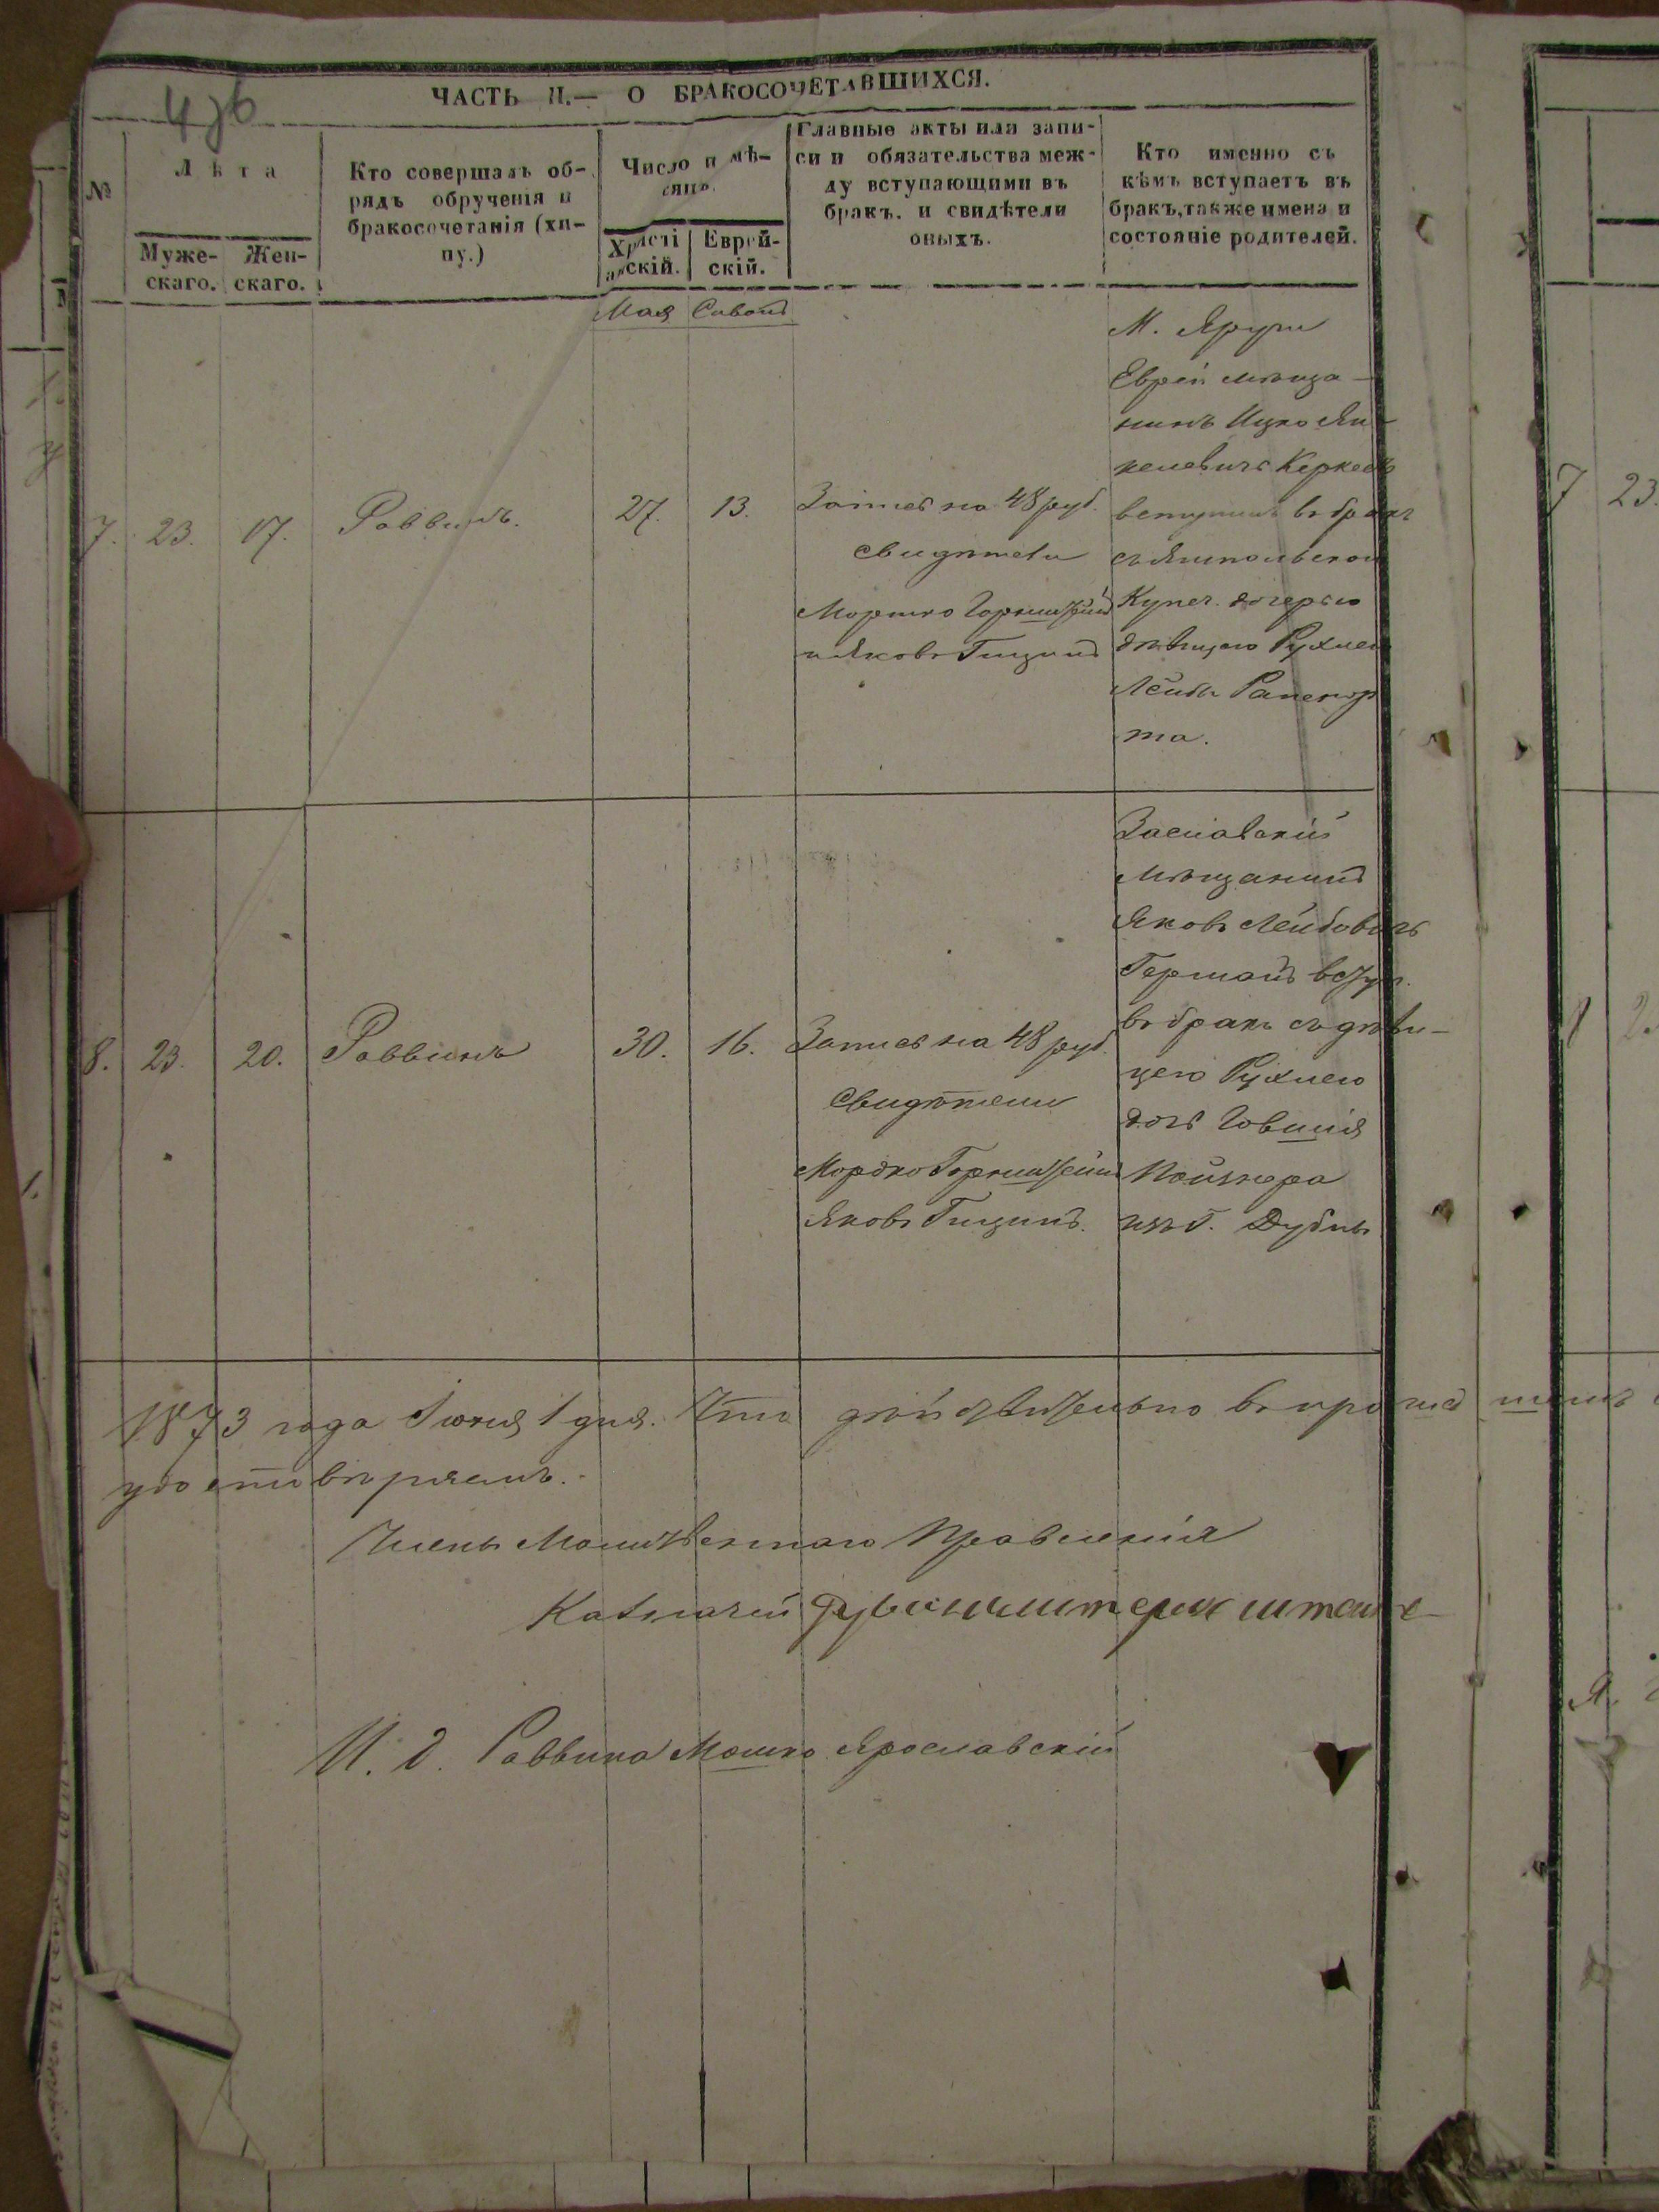 4зб
ЧАСТЬ II.— О БРАКОСОЧЕТАВШИХСЯ.
№
Лѣта
Муже-
скаго.
Жен-
скаго.
Кто совершалъ об-
рядъ обрученія и
бракосочетанія (хи-
пу.)
Число и мѣ-
сяцъ.
Христі
анскій.
Еврей-
скій.
Главные акты или запи-
си и обязательства меж-
ду вступающими въ
бракъ. и свидѣтели
оныхъ.
Кто именно съ
кѣмъ вступаетъ въ
бракъ, также имена и
состояніе родителей.
Мая
7. 23. 17. Раввинъ. 27. 13.
Запись на 48 руб.
свидѣтели
и Яковъ
М. Яруни
Еврей мѣща-
нинъ Ицко Ян-
келевичъ
вступилъ въ бракъ
съ Ямпольской
Купеч. дочерью
дѣвицею Рухлею
Лейбы Рапепор
та.
8. 23. 20. Раввинъ 30. 16.
Запись на 48 руб.
Свидѣтели
Мордко
Яковъ
Заславскій
мѣщанинъ
Яковъ Лейбовичъ
Германъ вступ.
въ бракъ съ дѣви-
цею Рухлею
дочь Іовшія
Пойзнера
изъ г. Дубны
1873 года Іюня 1 дня. Что дѣйствительно въ
удостовѣряемъ.
Члены Молитвеннаго Правленія
Казначей
И. д. Раввина Мошко Ярославскій
7 23.